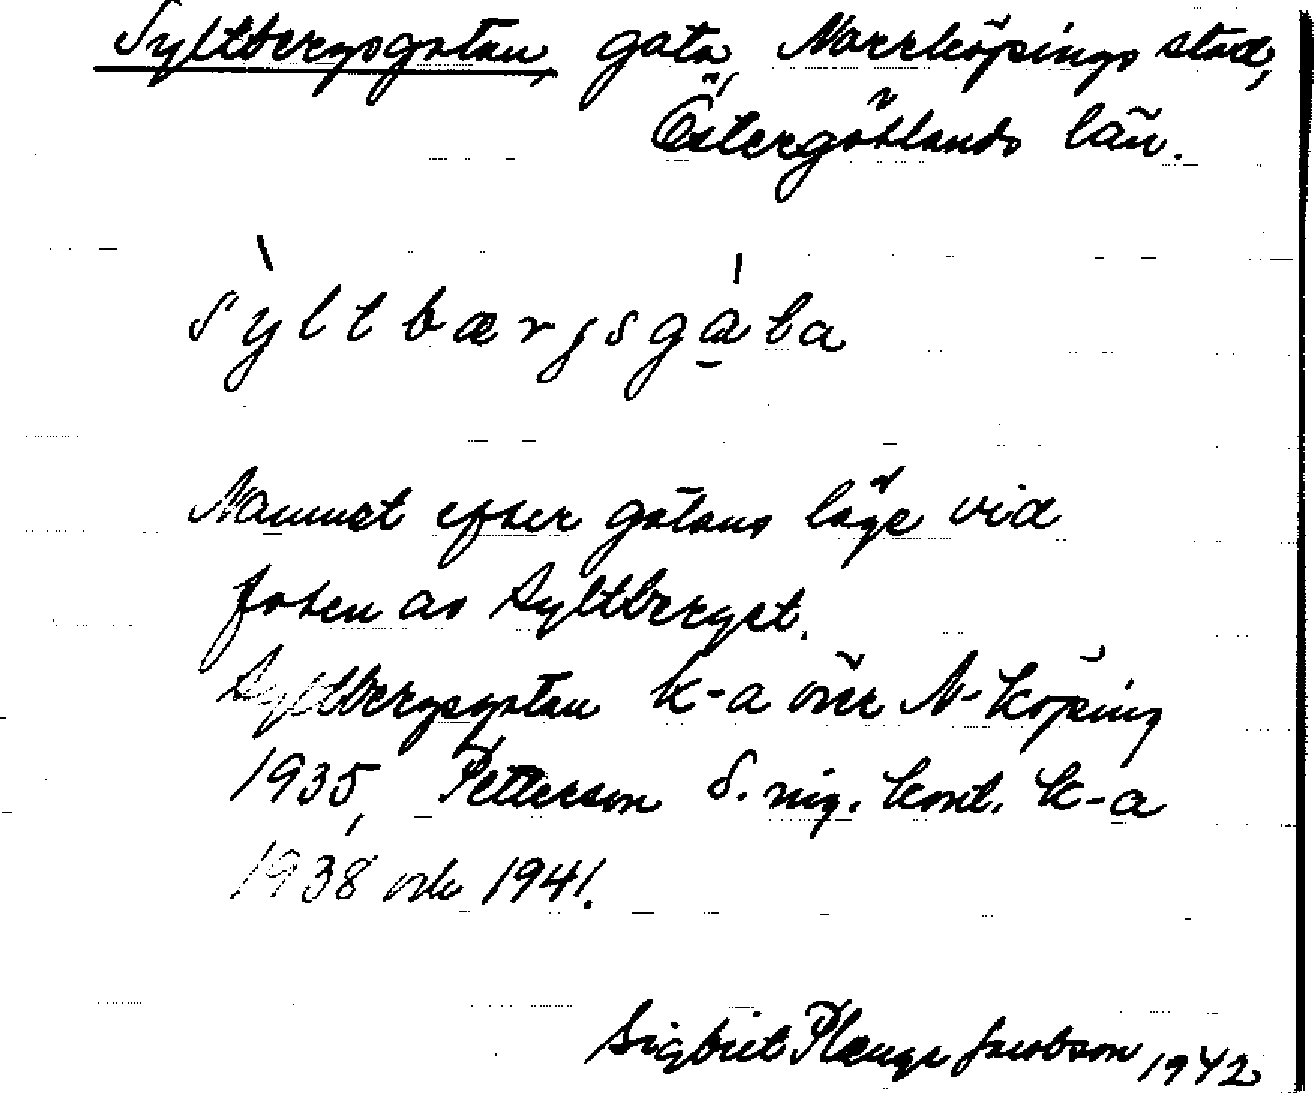 Syltbergsgatan, gata, Norrköpings stad,
Östergötlands län.
syltbærjsgata
Namnet efter gatans läge vid
foten av Syltberget.
Syltbergsgatan k-a över N-köping
1935, Petterson S. ing. kont. k-a
1938 och 1941.
Sigbrit Plænge Jacobson 1942